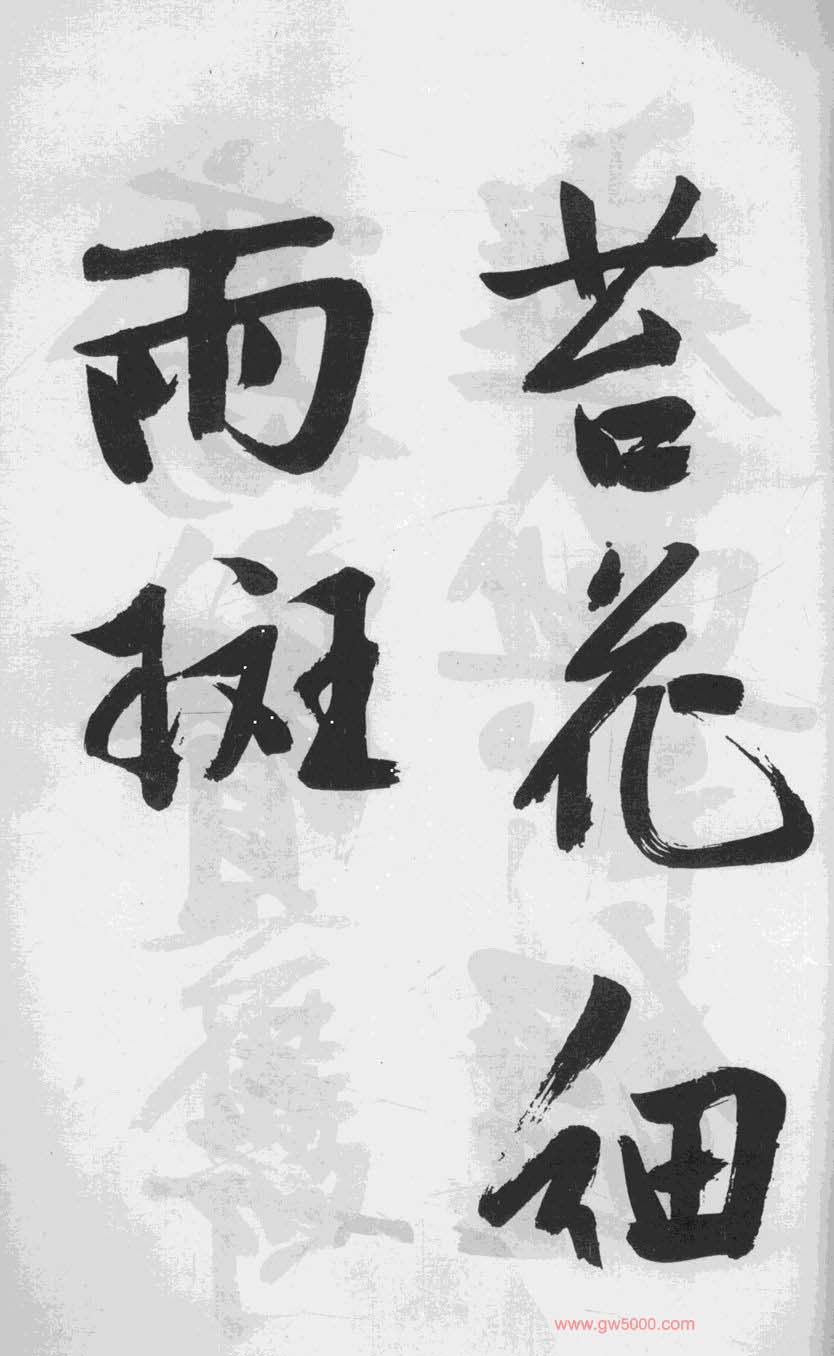 苔花細
雨斑
www.gw5000.com